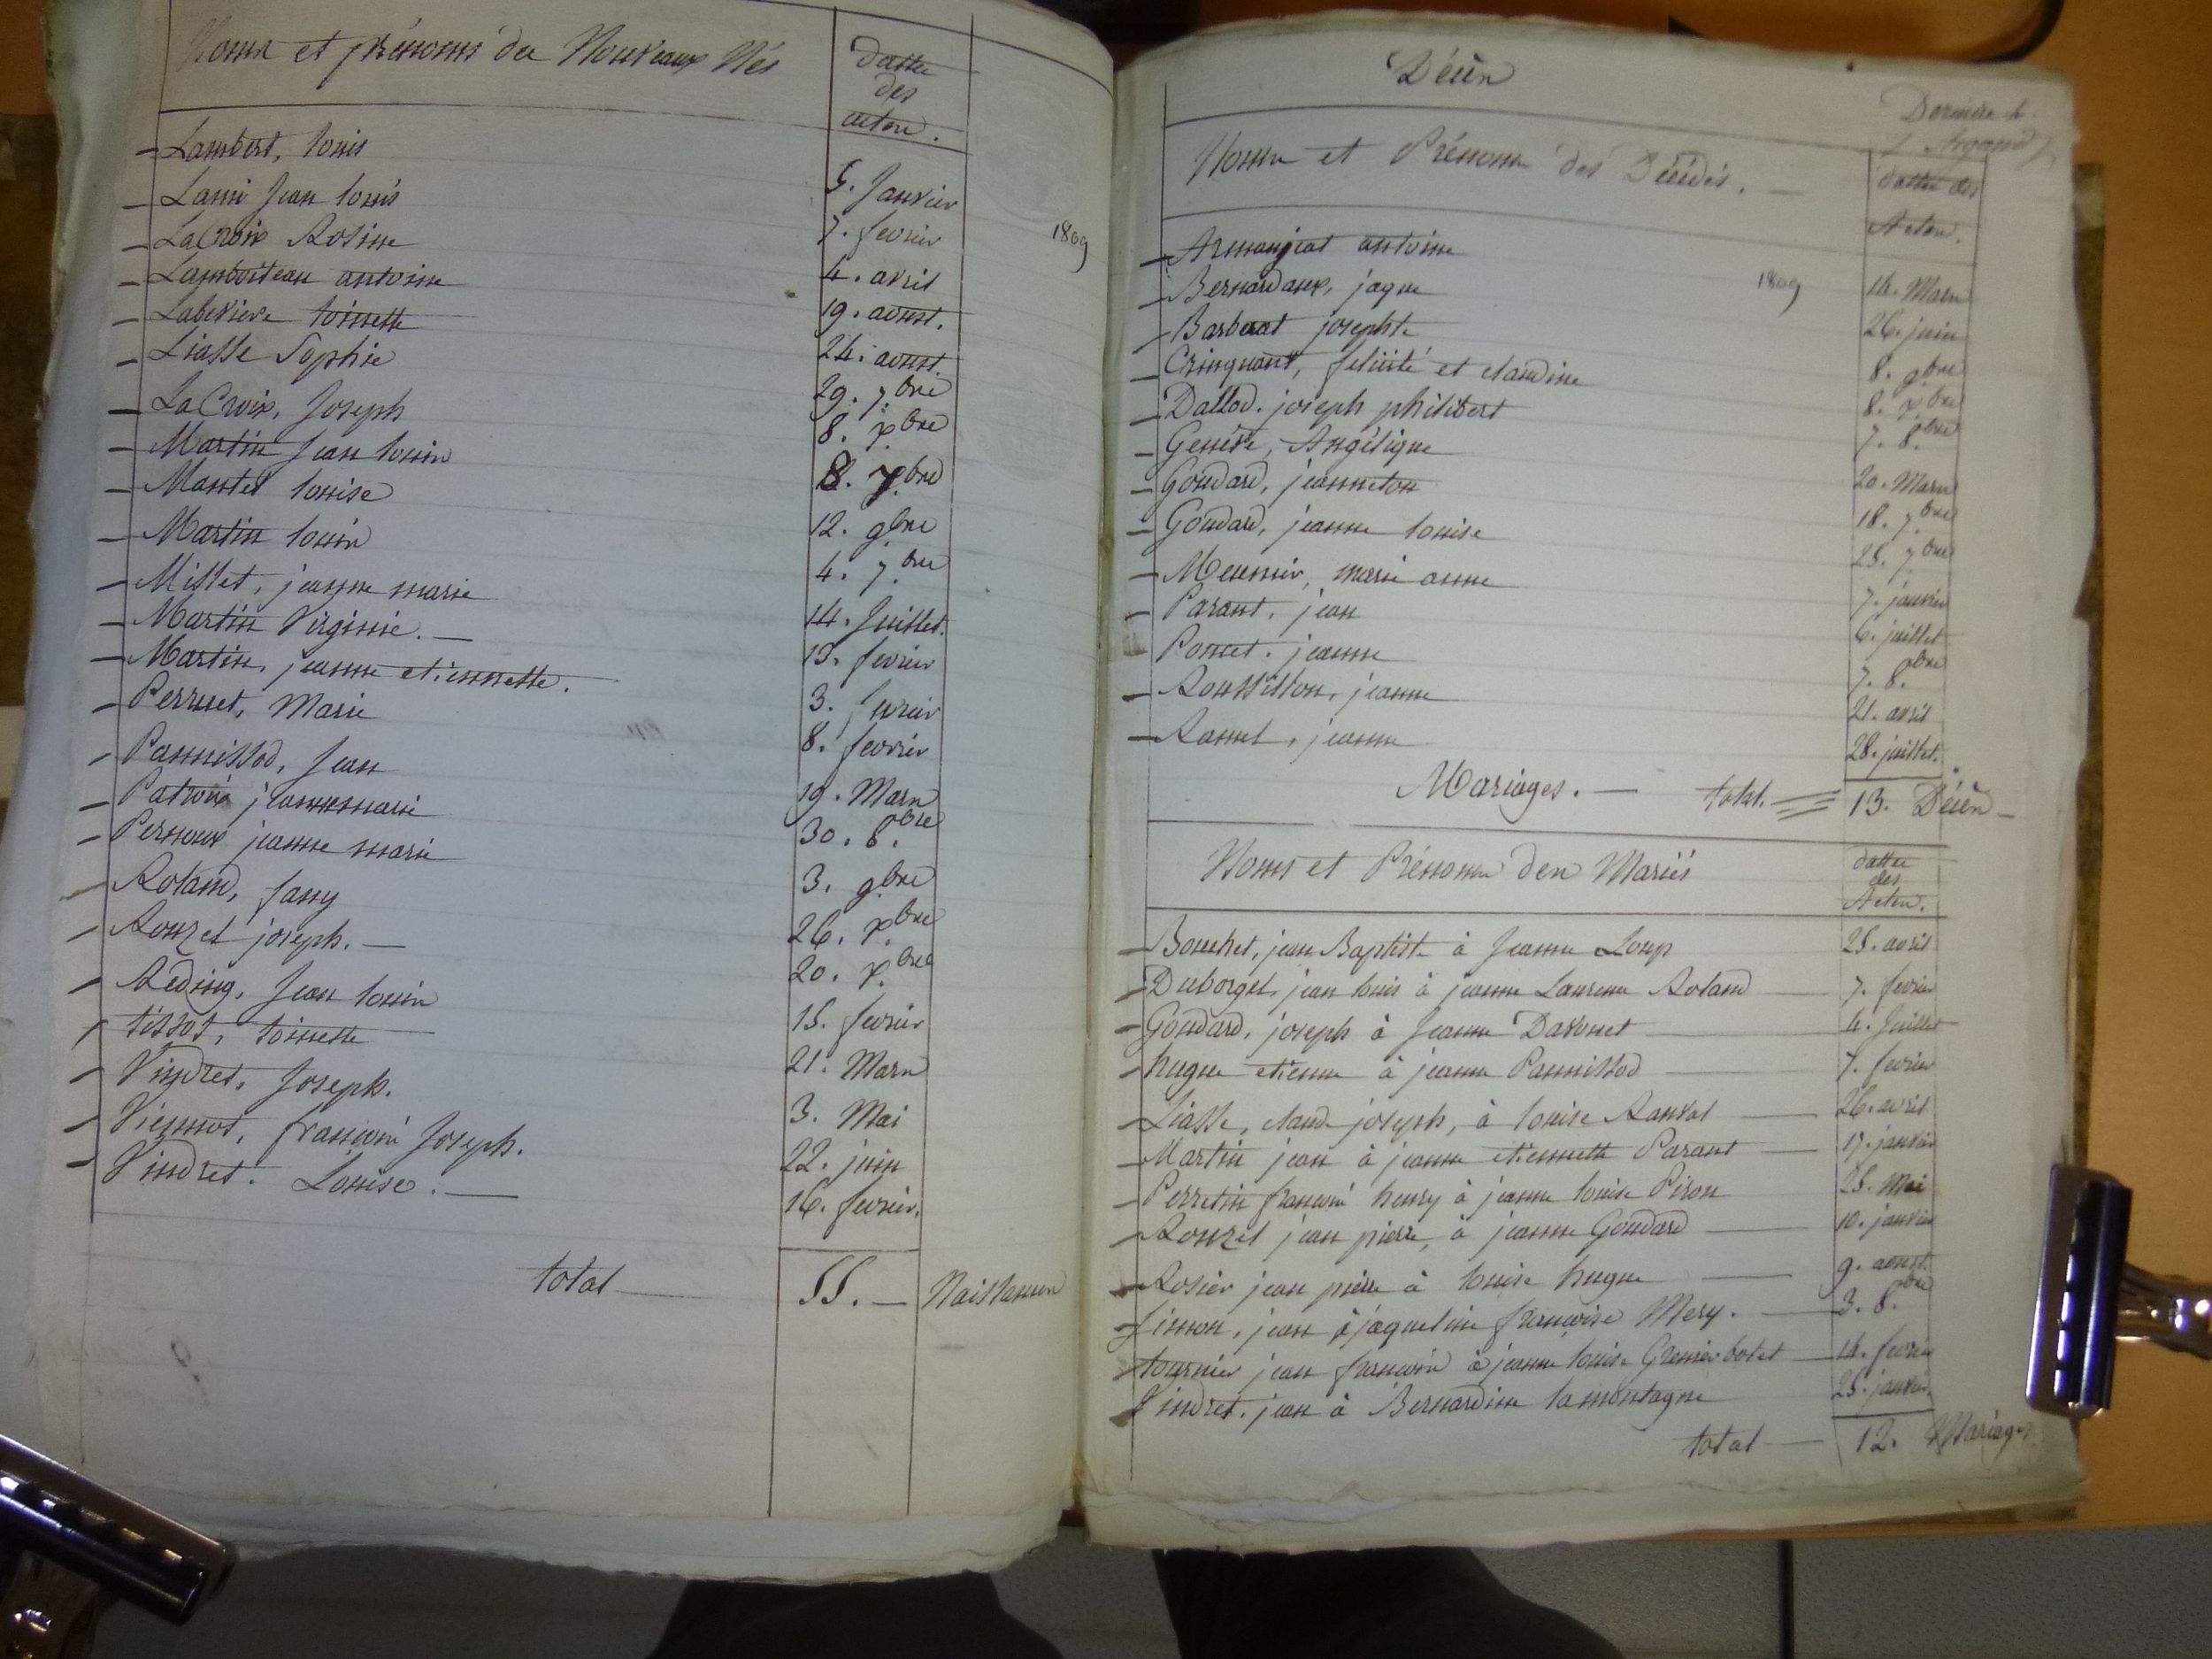 Noms et prénoms des Nouveaux Nés
dattes
des
actes.
Lambert, louis 5. Janvier
Lami Jean louis 7. fevrier
LaCroix Rosine 4. avril
Lamboiteau antoine 19. aoust.
Labeviere toinette 24. aoust.
Liasse Sophie 29. 7.bre
LaCroix, Joseph 8. x.bre
Martin Jean louis 8. x.bre
Mantel louise 12. 9.bre
Martin louis 4. 7.bre
Millet, jeanne marie 14. Juillet.
Martin Virginie. 13. fevrier
Martin, jeanne etiennette. 3. fevrier
Perruet, Marie 8. fevrier
Pannissod, Jean 19. Mars
jeannemarie 30. 8.bre
Pernoux jeanne marie 3. 9.bre
Roland, fany 26. x.bre
Rouzet joseph. 20. x.bre
Reding, Jean louis 15. fevrier
tissot, toinette 21. Mars
Vindret, Joseph. 3. Mai
Viennot, francois Joseph. 22. juin
Vindret. Louise. 16. fevrier.
total 55. Naissances
1809
Décès
Noms et Prénoms des Décédés.
dattes des
Actes.
Armanjeat antoine 14. Mars
1809
Bernardaux, jaque 26. juin
Barberat josephte 8. 9bre
Cringuant, felicité et claudine 8. x.bre
Dallod. joseph philibert 7. 8.bre
Genève, Angélique 20. Mars
Goudard, jeanneton 18. 7.bre
Goudard, jeanne louise 28. 7.bre
Meunier, marie anne 7. janvier
Parant, jean 6. juillet
Poncet. jeanne 7. 8.bre
Roussillon, jeanne 21. avril
Ramel, jeanne 28. juillet.
Mariages. total. 13. Décès
Noms et Prénoms des Mariés
dattes
des
Actes.
Bouchet, jean Baptiste à Jeanne Loup 25. avril
Duborget, jean louis à jeanne Laurence Roland 7. fevrier
Goudard, joseph à Jeanne Davonet 4. Juillet
hugue etienne à jeanne Pannissod 7. fevrier
Liasse, claude joseph, à louise Ranvel 26. avril
Martin jean à jeanne etiennette Parant 17. janvier
Perretin francois henry à jeanne louise Piron 25. Mai
Rouzet jean pierre, à jeanne Goudard 10. janvier
Rosier jean pierre à louise hugue 9. aoust
Simon, jean à jaqueline françoise Mery. 3. 8.bre
tournier jean francois à jeanne louise Grenier botet 14. fevrier
Vindret. jean à Bernardine lamontagne 25. janvier.
total 12. Mariages